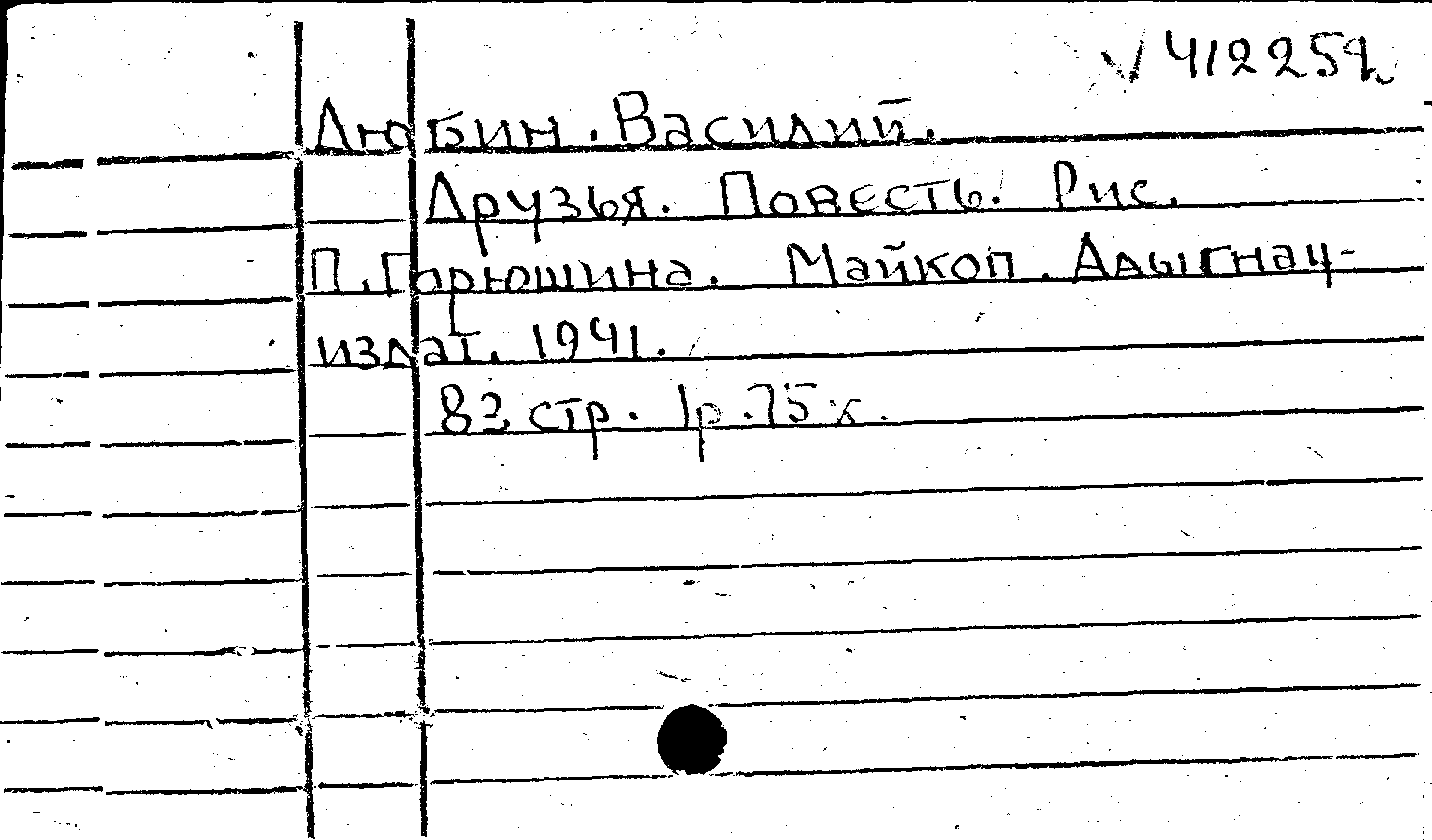 √ 412259
Любин. Василий.
Друзья. Повесть. Рис.
П. Горюшина. Майкоп. Адыгнац-
издат. 1941.
83 стр. 1р. 75 к.